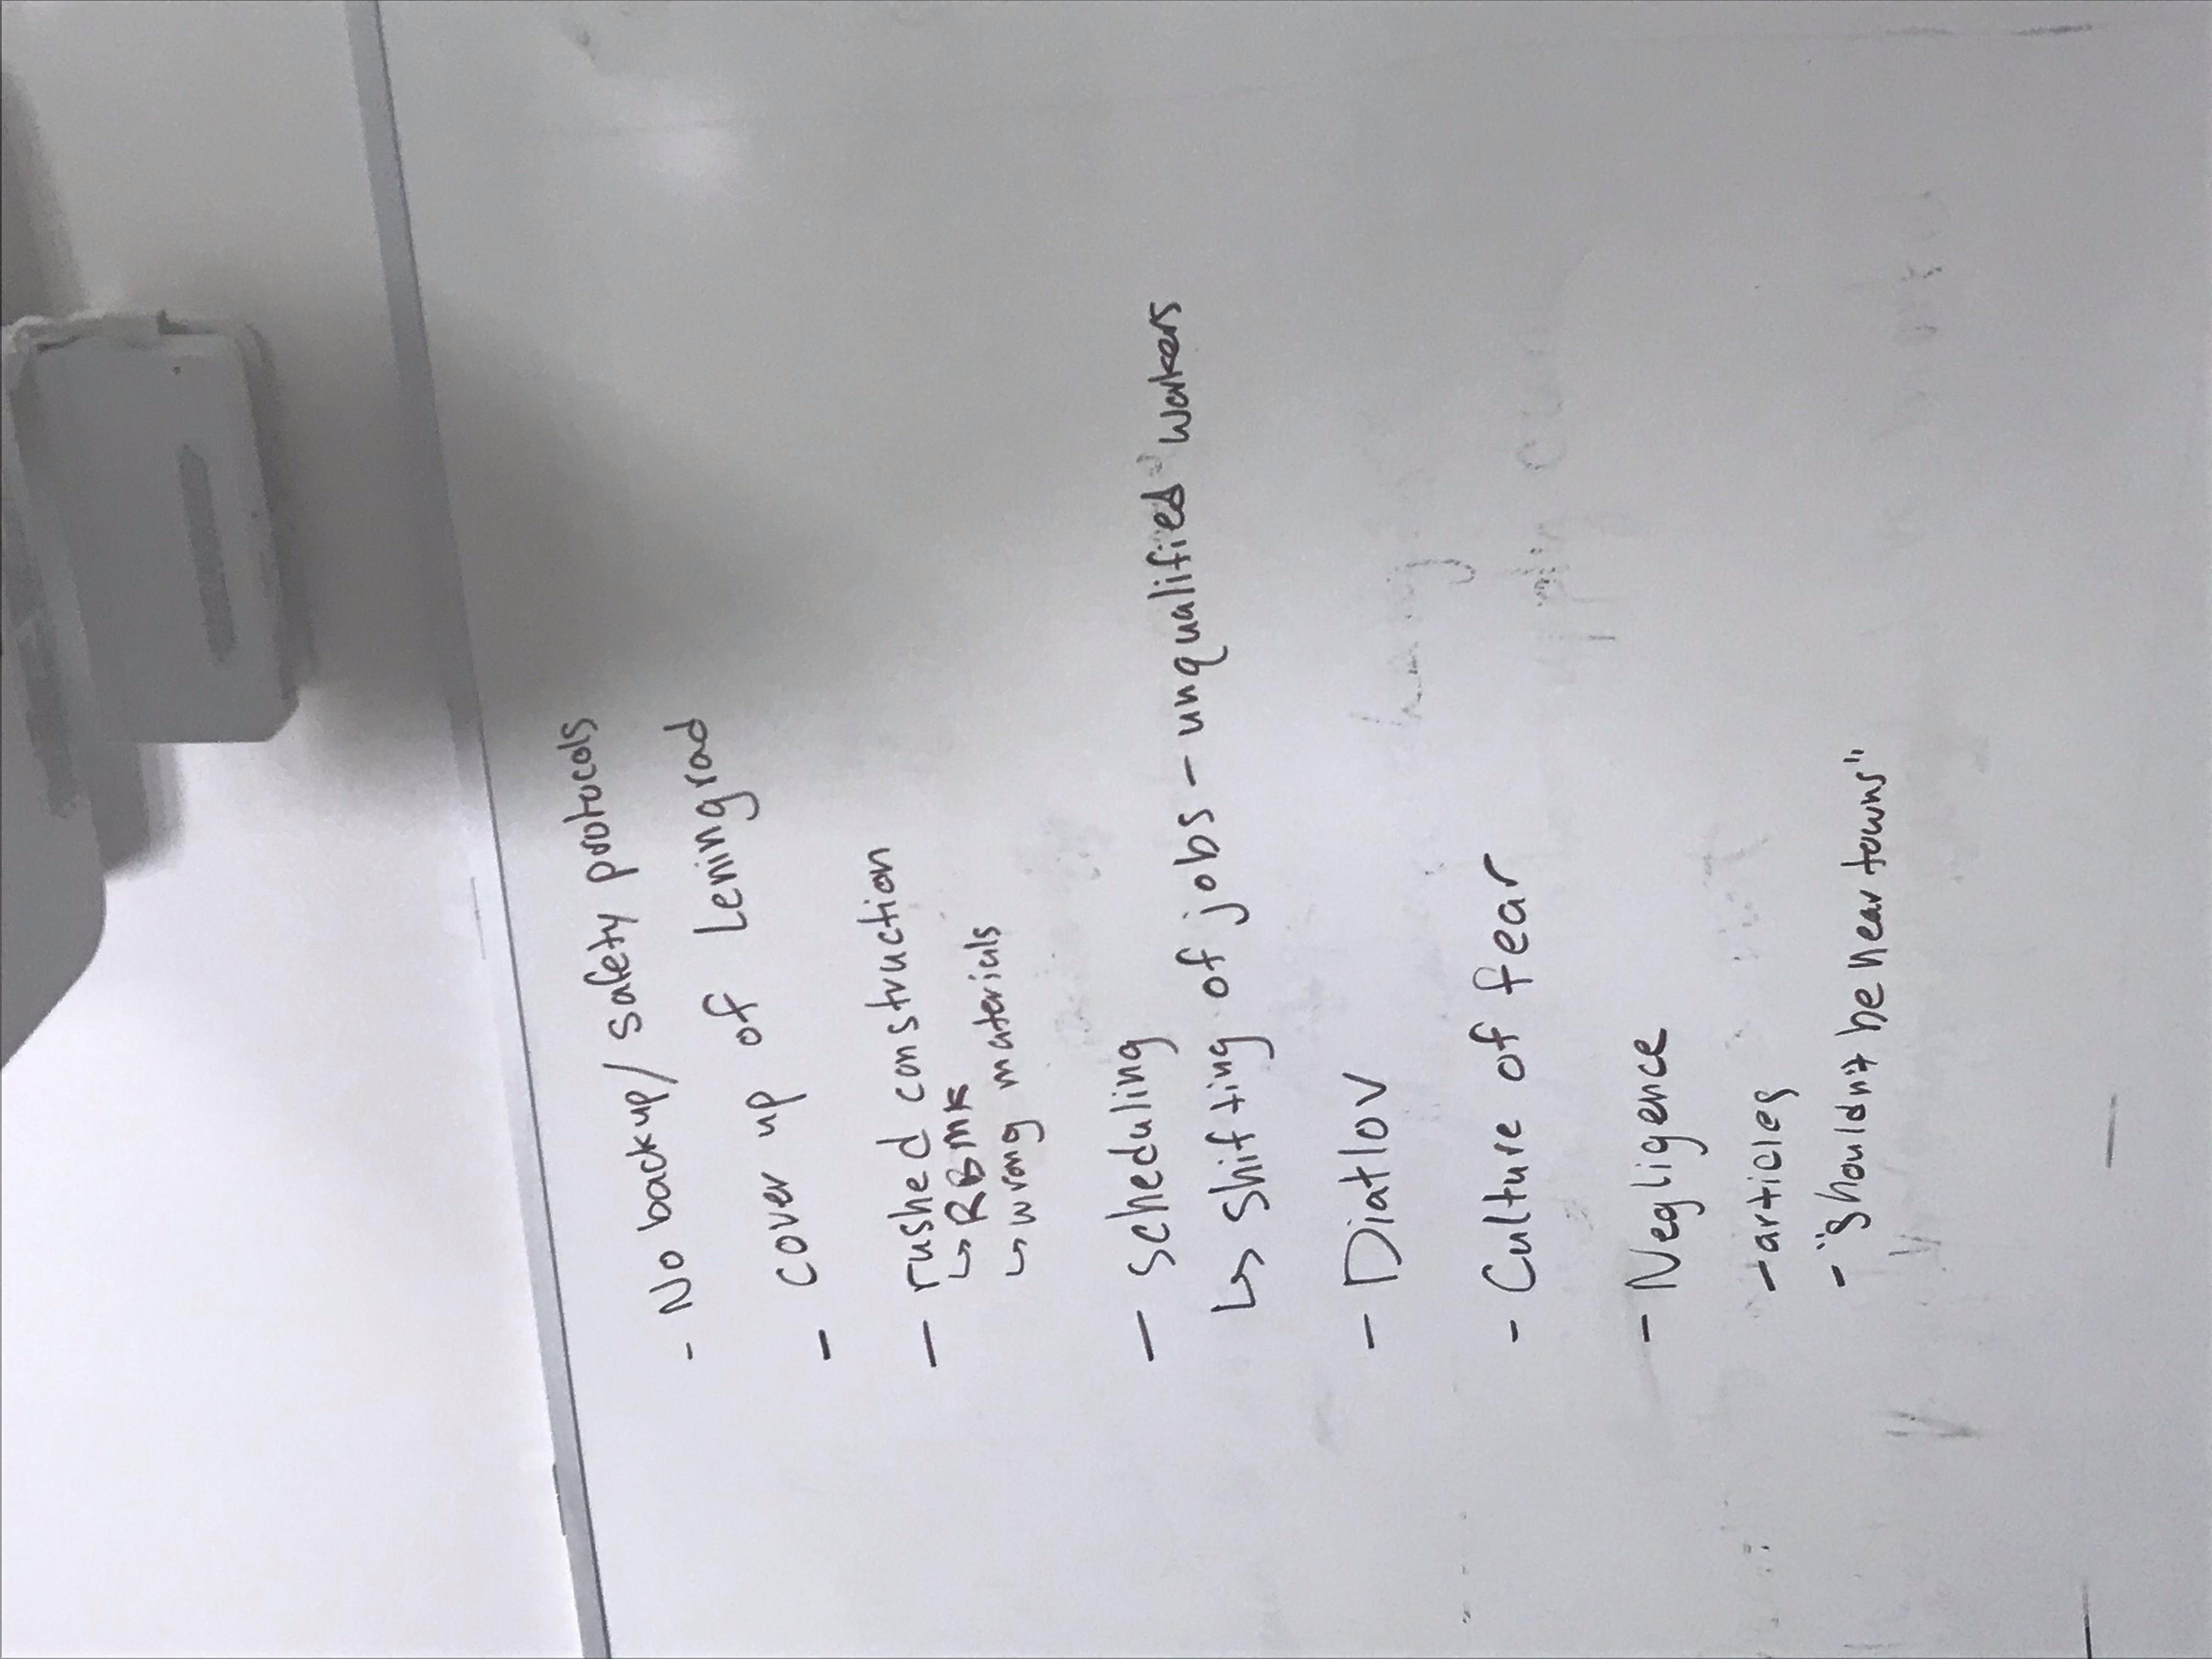 - No backup/ safety protocols
- cover up of Leningrad
- rushed construction
↳ RBMK
↳ wrong materials
- scheduling
↳ shifting of jobs - unqualified workers
- Diatlov
- Culture of fear
- Negligence
- articles
- "shouldn't be near towns"